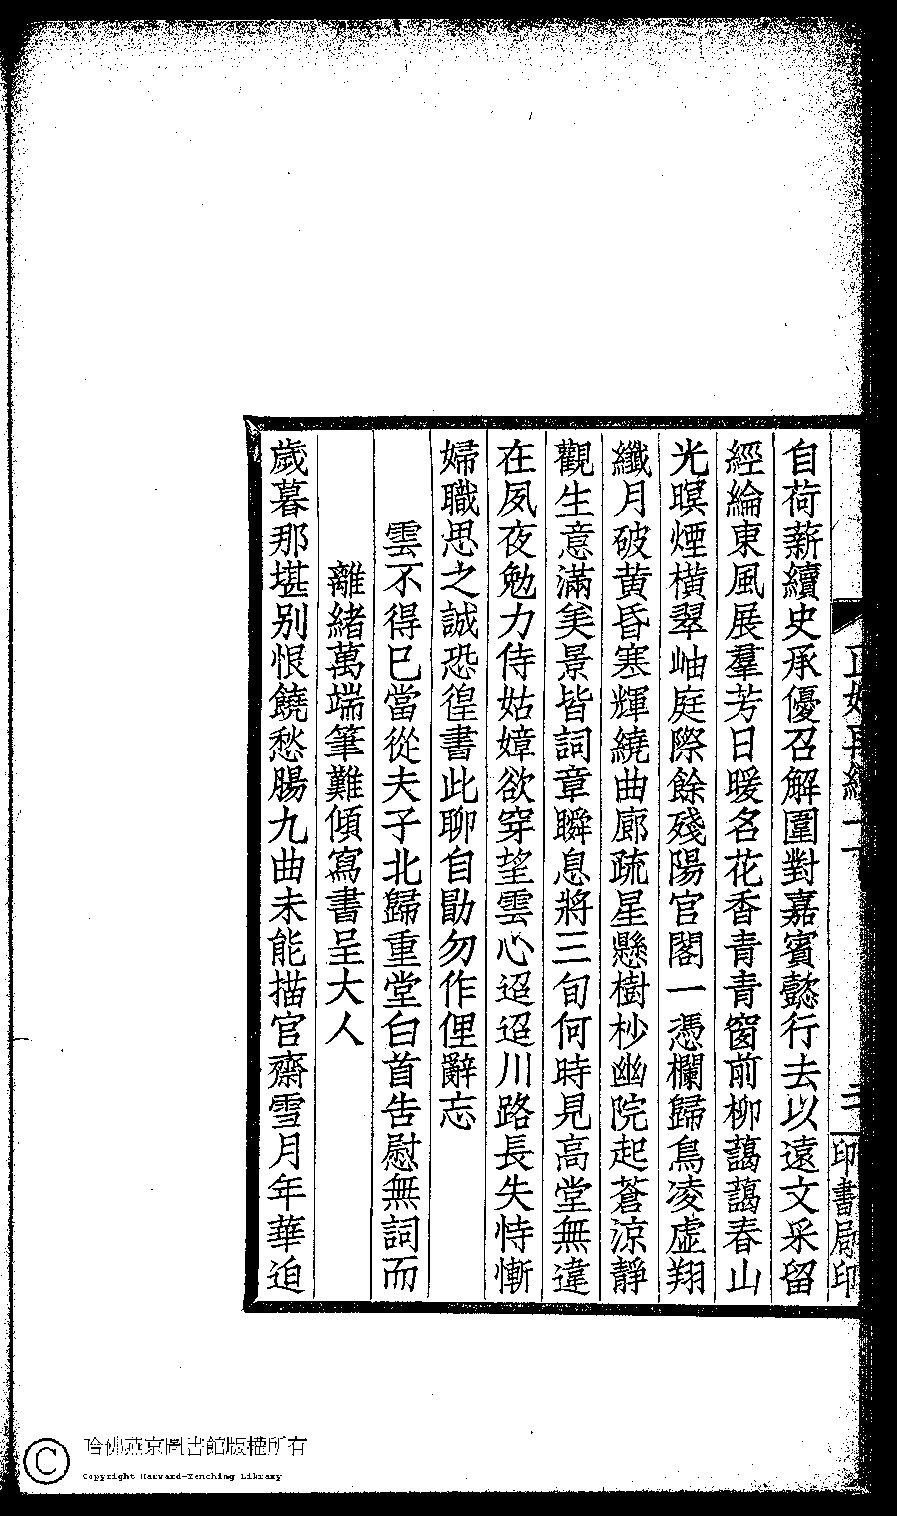 自荷薪續史承優召解圍對嘉賓懿行去以遠文采留
經綸東風展羣芳日暖名花香青青窗前柳藹藹春山
光暝煙橫翠岫庭際餘殘陽官閣一憑欄歸鳥凌虛翔
纖月破黄昏寒輝繞曲廊疏星懸樹杪幽院起蒼涼靜
觀生意滿矣景皆詞章瞬息將三旬何時見高堂無違
在夙夜勉力侍姑嫜欲穿望雲心迢迢川路長失恃慚
婦職思之誠恐徨書此聊自勖勿作俚辭忘
雲不得已當從夫子北歸重堂白首告慰無詞而
離緒萬端筆難傾寫書呈大人
歲暮那堪别恨饒愁腸九曲未能描官齋雪月年華迫
印書局印
哈佛燕京圖書館版權所有
Copyright Harvard-Yenching Library